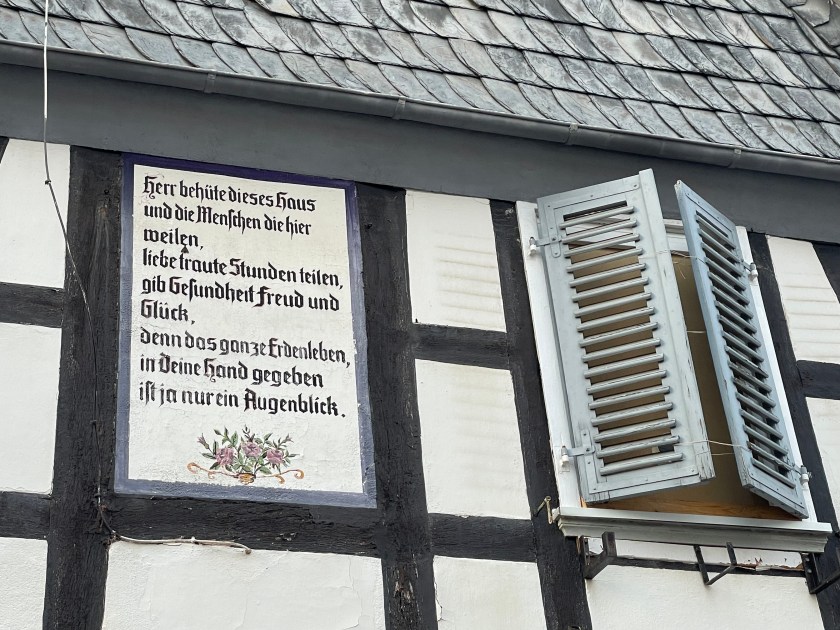 Herr behüte dieses Haus
und die Menschen die hier
weilen,
liebe traute Stunden teilen,
gib Gesundheit Freud und
Glück,
denn das ganze Erdenleben,
in Deine Hand gegeben
ist ja nur ein Augenblick.